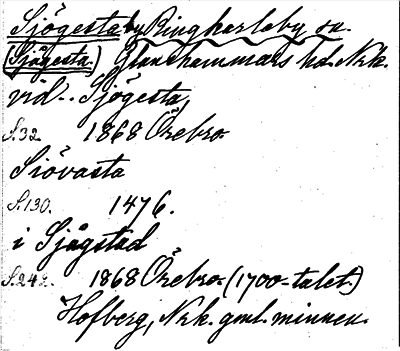 Sjögesta by Ringkarleby sn.
(Sjägesta.) Glanshammars hd. Nrk.
vid.. Sjögesta,
S.32. 1868 Örebro
Siövasta
S.130. 1476.
i Sjögstad
S.248. 1868 Örebro (1700-talet.)
Hofberg, Nrk. gml. minnen.